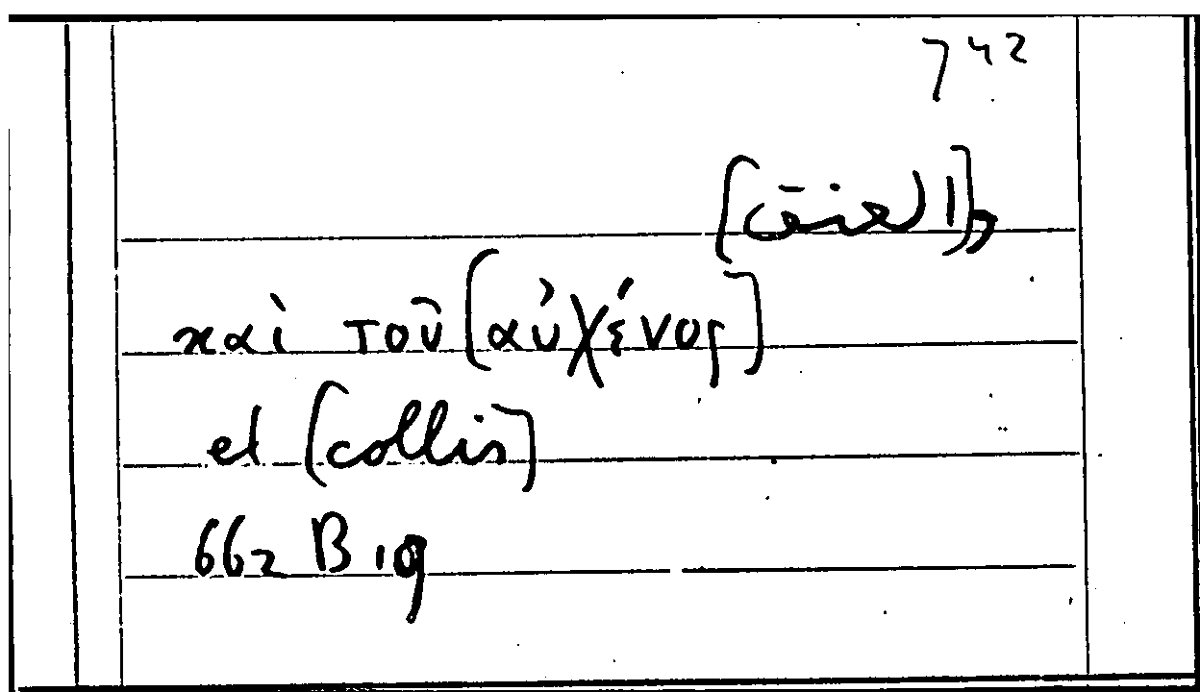 742
و[العنق]
καὶ τοῦ [αὐχένος]
et [collis]
662 B 19